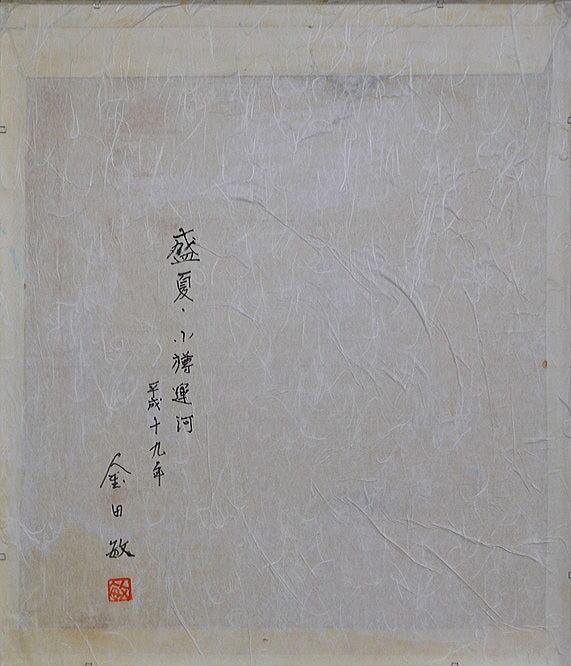 盛夏・小樽運河
平成十九年
金田敏
敏